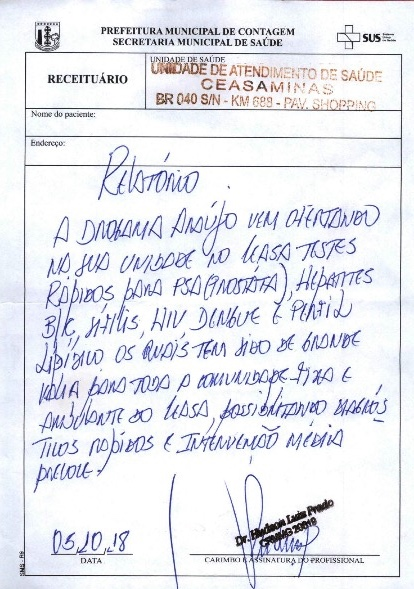 PREFEITURA MUNICIPAL DE CONTAGEM
SECRETARIA MUNICIPAL DE SAÚDE
SUS
RECEITUÁRIO
UNIDADE DE SAÚDE
UNIDADE DE ATENDIMENTO DE SAÚDE
CEASAMINAS
BR 040 S/N - KM 688 - PAV. SHOPPING
Nome do paciente:
Endereço:
RELATÓRIO
A DROGAMA ARAÚJO VEM OFERTANDO
NA SUA UNIDADE NO CEASA TESTES
RÁPIDOS PARA PSA (PROSTÁTA), HEPATITES
B/C, SÍFILIS, HIV DENGUE E PERFIL
LIPÍDICO OS QUAIS TEM SIDO DE GRANDE
VALIA PARA TODA A COMUNIDADE FIXA E
AMBULANTE DO CEASA, POSSIBILITANDO DIAGNÓS
TICOS RÁPIDOS E INTERVENÇÃO MÉDICA
PRECOCE.
Dr. Hudson Luis Prado
CRMMG 20919
05,10,18
DATA
CARIMBO E ASSINATURA DO PROFISSIONAL
SMS - R9